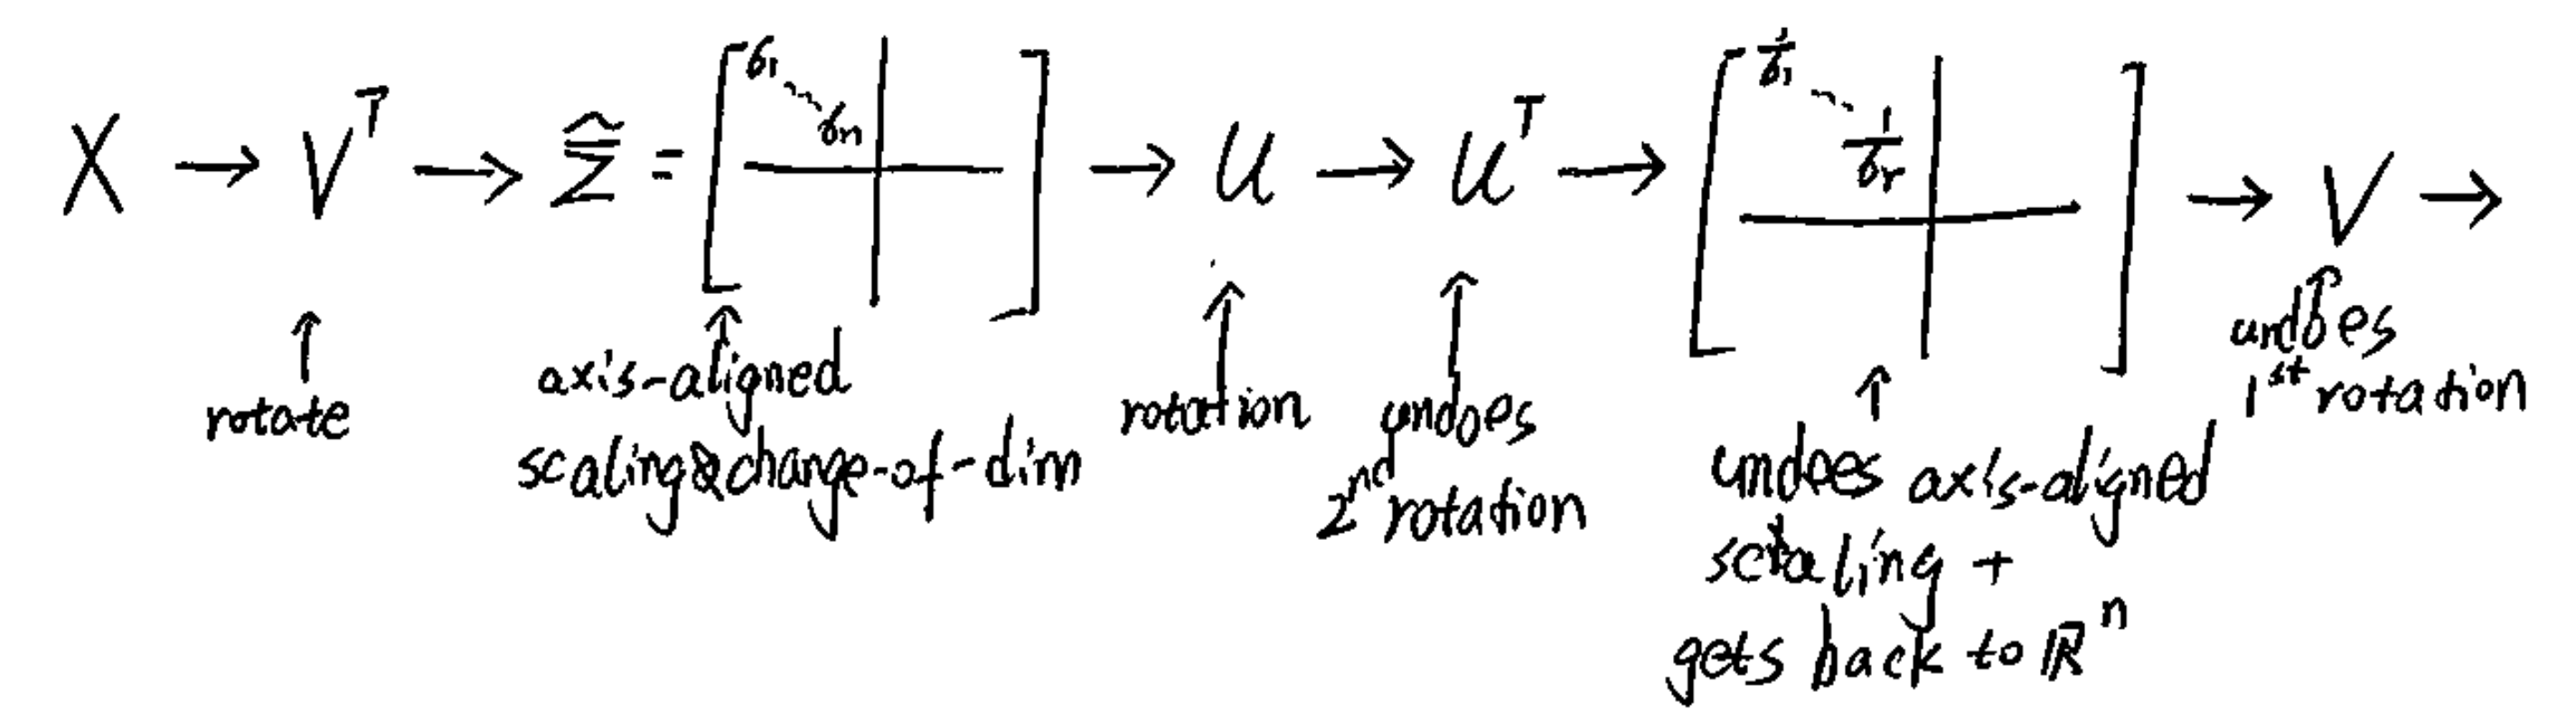 X → Vᵀ → Σ̃ = [σ₁ ⋱ σₙ] → U → Uᵀ → [1/σ₁ ⋱ 1/σᵣ] → V →
rotate
axis-aligned
scaling & change-of-dim
rotation
undoes
2nd rotation
undoes axis-aligned
scaling +
gets back to ℝⁿ
undoes
1st rotation